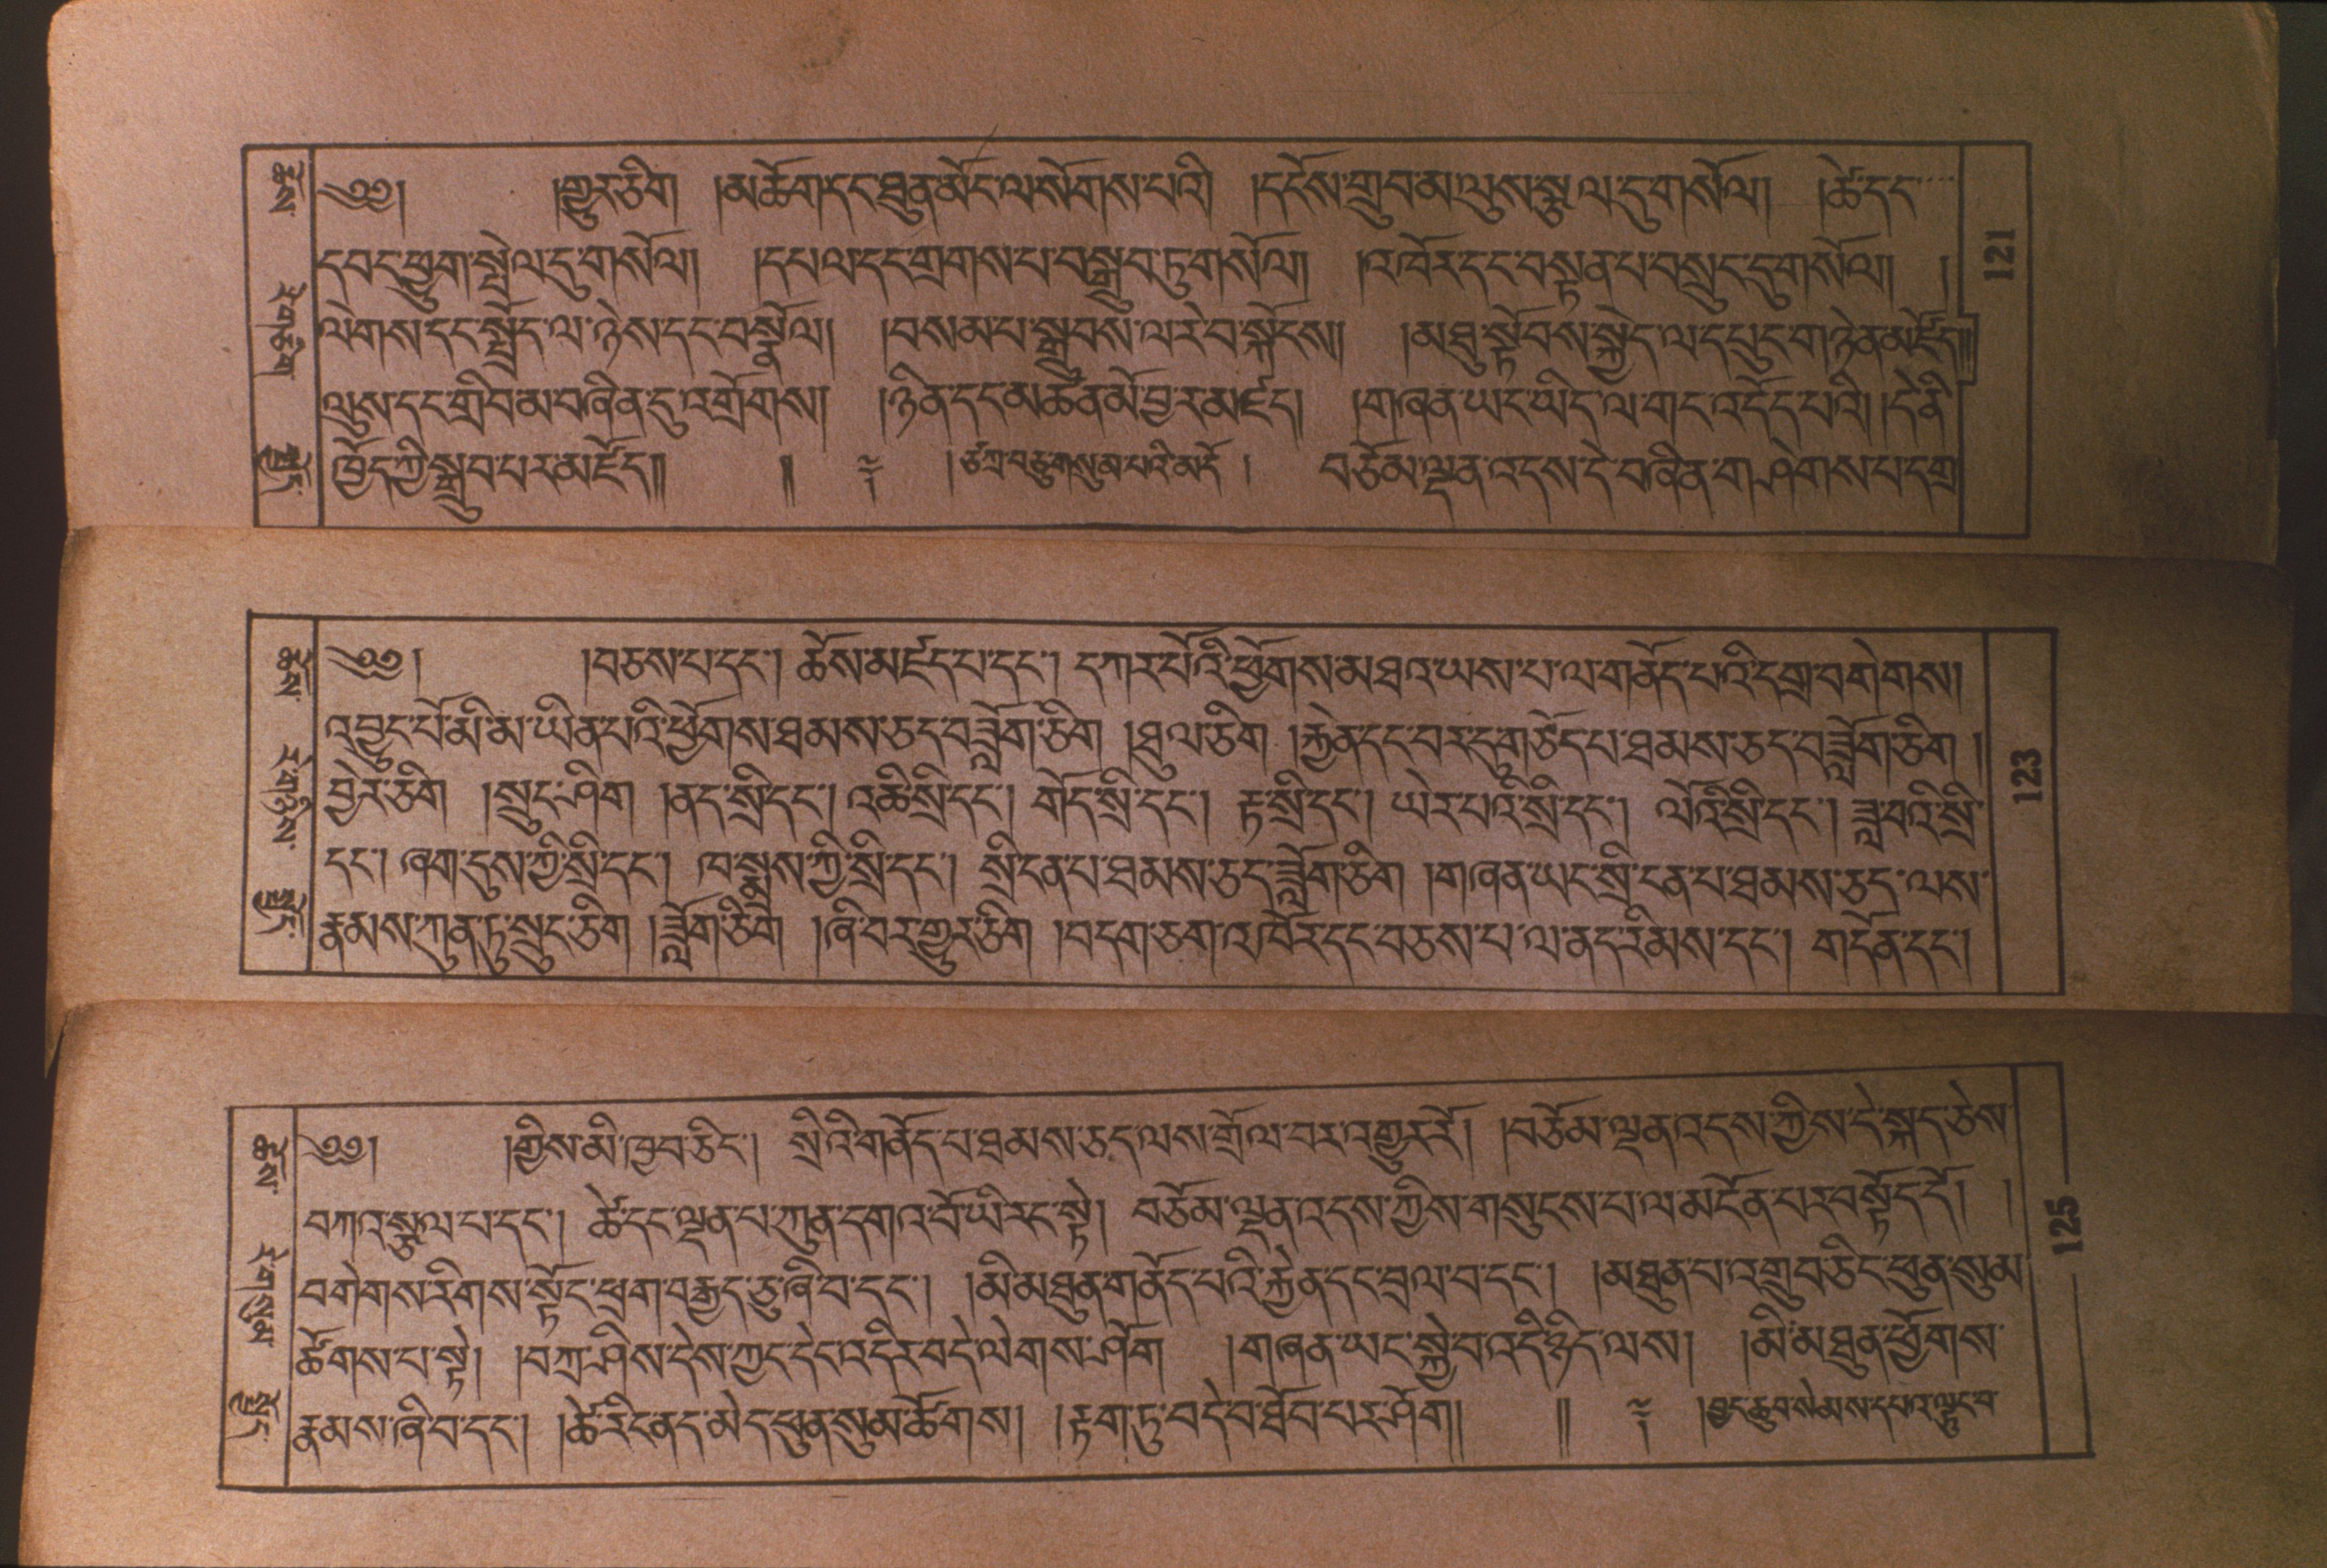 ༄༅། །གྱུར་ཅིག །མཆོག་དང་ཐུན་མོང་ལ་སོགས་པའི། །དངོས་གྲུབ་མ་ལུས་སྩལ་དུ་གསོལ། །ཚེ་དང་
དབང་ཕྱུག་སྤེལ་དུ་གསོལ། །དཔལ་དང་གྲགས་པ་བསྒྲུབ་ཏུ་གསོལ། །འཁོར་དང་བསྟན་པ་བསྲུང་དུ་གསོལ། །
ལེགས་དང་སྤྲོད་ལ་ཉེས་དང་བསྣོལ། །བསམ་པ་སྒྲུབས་ལ་རེ་བ་སྐོངས། །མཐུ་སྟོབས་སྐྱེད་ལ་དཔུང་གཉེན་མཛོད༎
ལུས་དང་གྲིབ་མ་བཞིན་དུ་འགྲོགས། །ཉིན་དང་མཚན་མོ་བྱ་ར་མཛད། །གཞན་ཡང་ཡིད་ལ་གང་འདོད་པའི། །དེ་ནི་
ཁྱོད་ཀྱི་སྒྲུབ་པར་མཛོད༎ ༎ །ཙཀྲ་བཅུ་གསུམ་པའི་མདོ །བཅོམ་ལྡན་འདས་དེ་བཞིན་གཤེགས་པ་དགྲ་
121
༄༅། །བཅས་པ་དང་། ཆོས་མཛད་པ་དང་། དཀར་པོའི་ཕྱོགས་མཐའ་ཡས་པ་ལ་གནོད་པའི་དགྲ་བགེགས།
འབྱུང་པོ་མི་མ་ཡིན་པའི་ཕྱོགས་ཐམས་ཅད་བཟློག་ཅིག །ཐུལ་ཅིག །རྐྱེན་དང་བར་དུ་གཅོད་པ་ཐམས་ཅད་བཟློག་ཅིག །
བྱེར་ཅིག །སྲུང་ཤིག །ནད་སྲི་དང་། འཆི་སྲི་དང་། གོད་སྲི་དང་། རྟ་སྲི་དང་། ཡེར་པའི་སྲི་དང་། ལོའི་སྲི་དང་། ཟླ་བའི་སྲི་
དང་། ཞག་དུས་ཀྱི་སྲི་དང་། ཁ་སྨྲས་ཀྱི་སྲི་དང་། སྲི་ངན་པ་ཐམས་ཅད་ཟློག་ཅིག །གཞན་ཡང་སྲི་ངན་པ་ཐམས་ཅད་ལས་
རྣམས་ཀུན་ཏུ་སྲུང་ཅིག །ཟློག་ཅིག །ཞི་བར་གྱུར་ཅིག །བདག་ཅག་འཁོར་དང་བཅས་པ་ལ་ནད་རིམས་དང་། གདོན་དང་།
123
༄༅། །གྱིས་མི་ཁྱབ་ཅིང་། སྲིའི་གནོད་པ་ཐམས་ཅད་ལས་གྲོལ་བར་འགྱུར་རོ། །བཅོམ་ལྡན་འདས་ཀྱིས་དེ་སྐད་ཅེས་
བཀའ་སྩལ་པ་དང་། ཚེ་དང་ལྡན་པ་ཀུན་དགའ་བོ་ཡི་རང་སྟེ། བཅོམ་ལྡན་འདས་ཀྱིས་གསུངས་པ་ལ་མངོན་པར་བསྟོད་དོ། །
བགེགས་རིགས་སྟོང་ཕྲག་བརྒྱད་ཅུ་ཞི་བ་དང་། །མི་མཐུན་གནོད་པའི་རྐྱེན་དང་བྲལ་བ་དང་། །མཐུན་པ་འགྲུབ་ཅིང་ཕུན་སུམ་
ཚོགས་པ་སྟེ། །བཀྲ་ཤིས་དེས་ཀྱང་དེང་འདིར་བདེ་ལེགས་ཤོག །གཞན་ཡང་སྐྱེ་བ་འདི་ཉིད་ལས། །མི་མཐུན་ཕྱོགས་
རྣམས་ཞི་བ་དང་། །ཚེ་རིང་ནད་མེད་ཕུན་སུམ་ཚོགས། །རྟག་ཏུ་བདེ་བ་ཐོབ་པར་ཤོག། ༎ །བྱང་ཆུབ་སེམས་དཔའ་ལྟུང་བ་
125